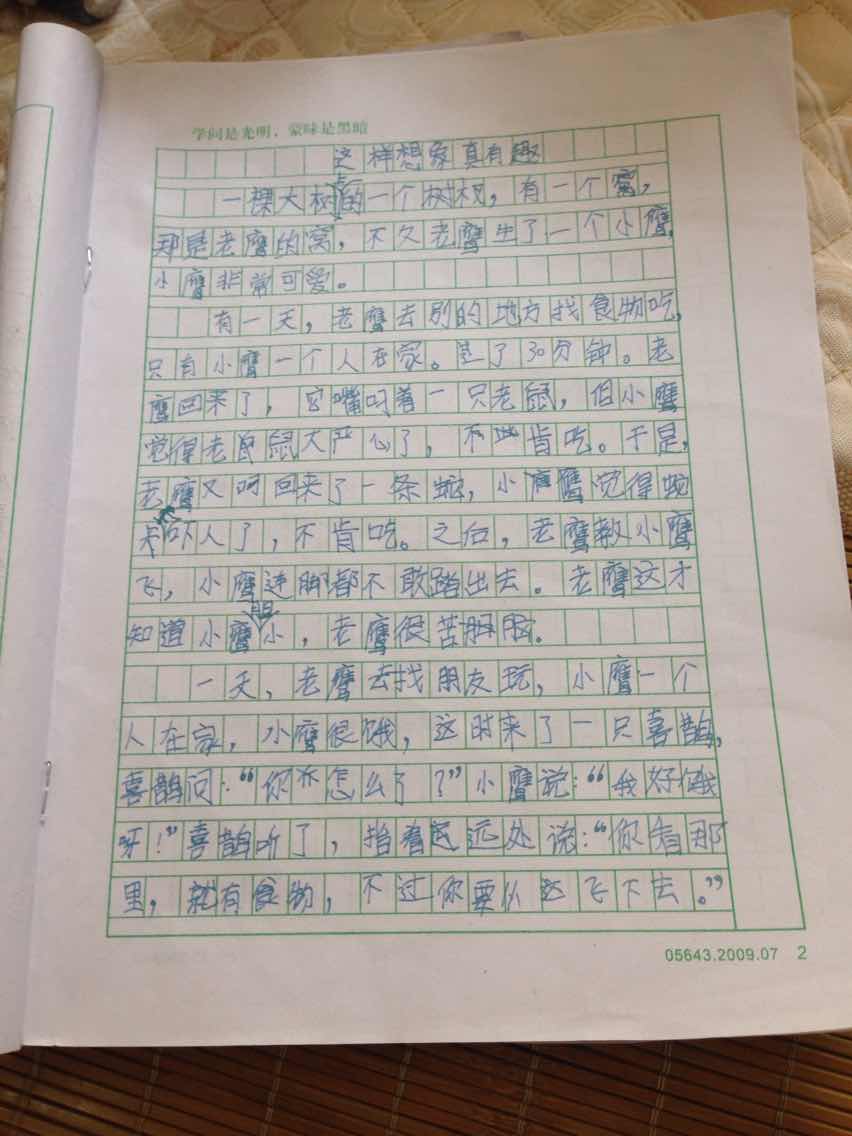 学问是光明，蒙昧是黑暗
这样想象真有趣
一棵大树上的一个树杈，有一个窝，
那是老鹰的窝，不久老鹰生了一个小鹰，
小鹰非常可爱。
有一天，老鹰去别的地方找食物吃，
只有小鹰一个人在家。过了30分钟。老
鹰回来了，它嘴叼着一只老鼠，但小鹰
觉得老鼠太严心了，不肯吃。于是，
老鹰又叼回来了一条蛇，小鹰觉得蛇
太吓人了，不肯吃。之后，老鹰教小鹰
飞，小鹰连脚都不敢踏出去。老鹰这才
知道小鹰胆小，老鹰很苦恼。
一天，老鹰去找朋友玩，小鹰一个
人在家，小鹰很饿，这时来了一只喜鹊，
喜鹊问：“你怎么了？”小鹰说：“我好饿
呀！”喜鹊听了，指着远处说：“你看那
里，就有食物，不过你要从这飞下去。”
05643.2009.07 2